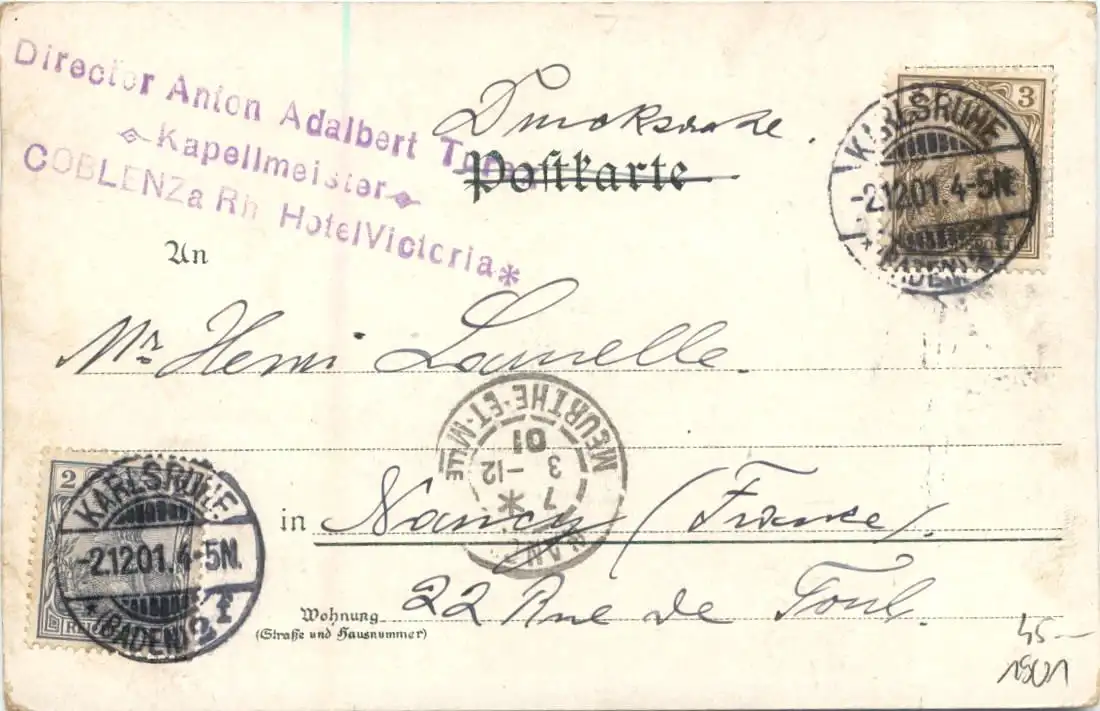 Director Anton Adalbert
Kapellmeister
COBLENZ a Rh. Hotel Victoria *
Drucksache.
Postkarte
3
KARLSRUHE
-2.12.01. 4-5N.
* (BADEN) 2 f
An
Mr. Henri Lamelle.
MEURTHE-ET-MLLE
7 * 3 -12 01
NANCY
2
KARLSRUHE
-2.12.01. 4-5N.
* (BADEN) 2 f
in Nancy (France).
22 Rue de Toul.
Wohnung
(Straße und Hausnummer)
45-
1901